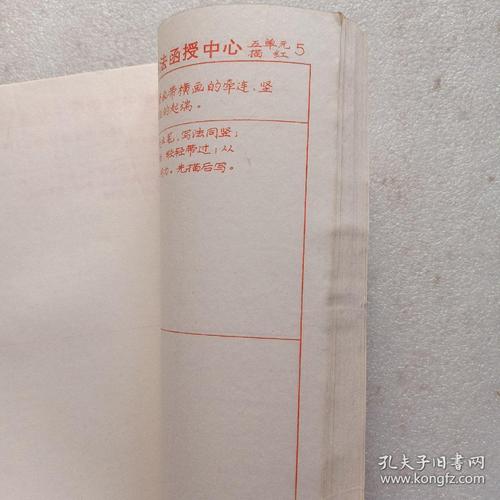 法函授中心 五单元描红 5
带横画的牵连、竖
的起端。
笔,写法同竖;
轻轻带过;从
先描后写。
孔夫子旧书网
www.kongfz.com